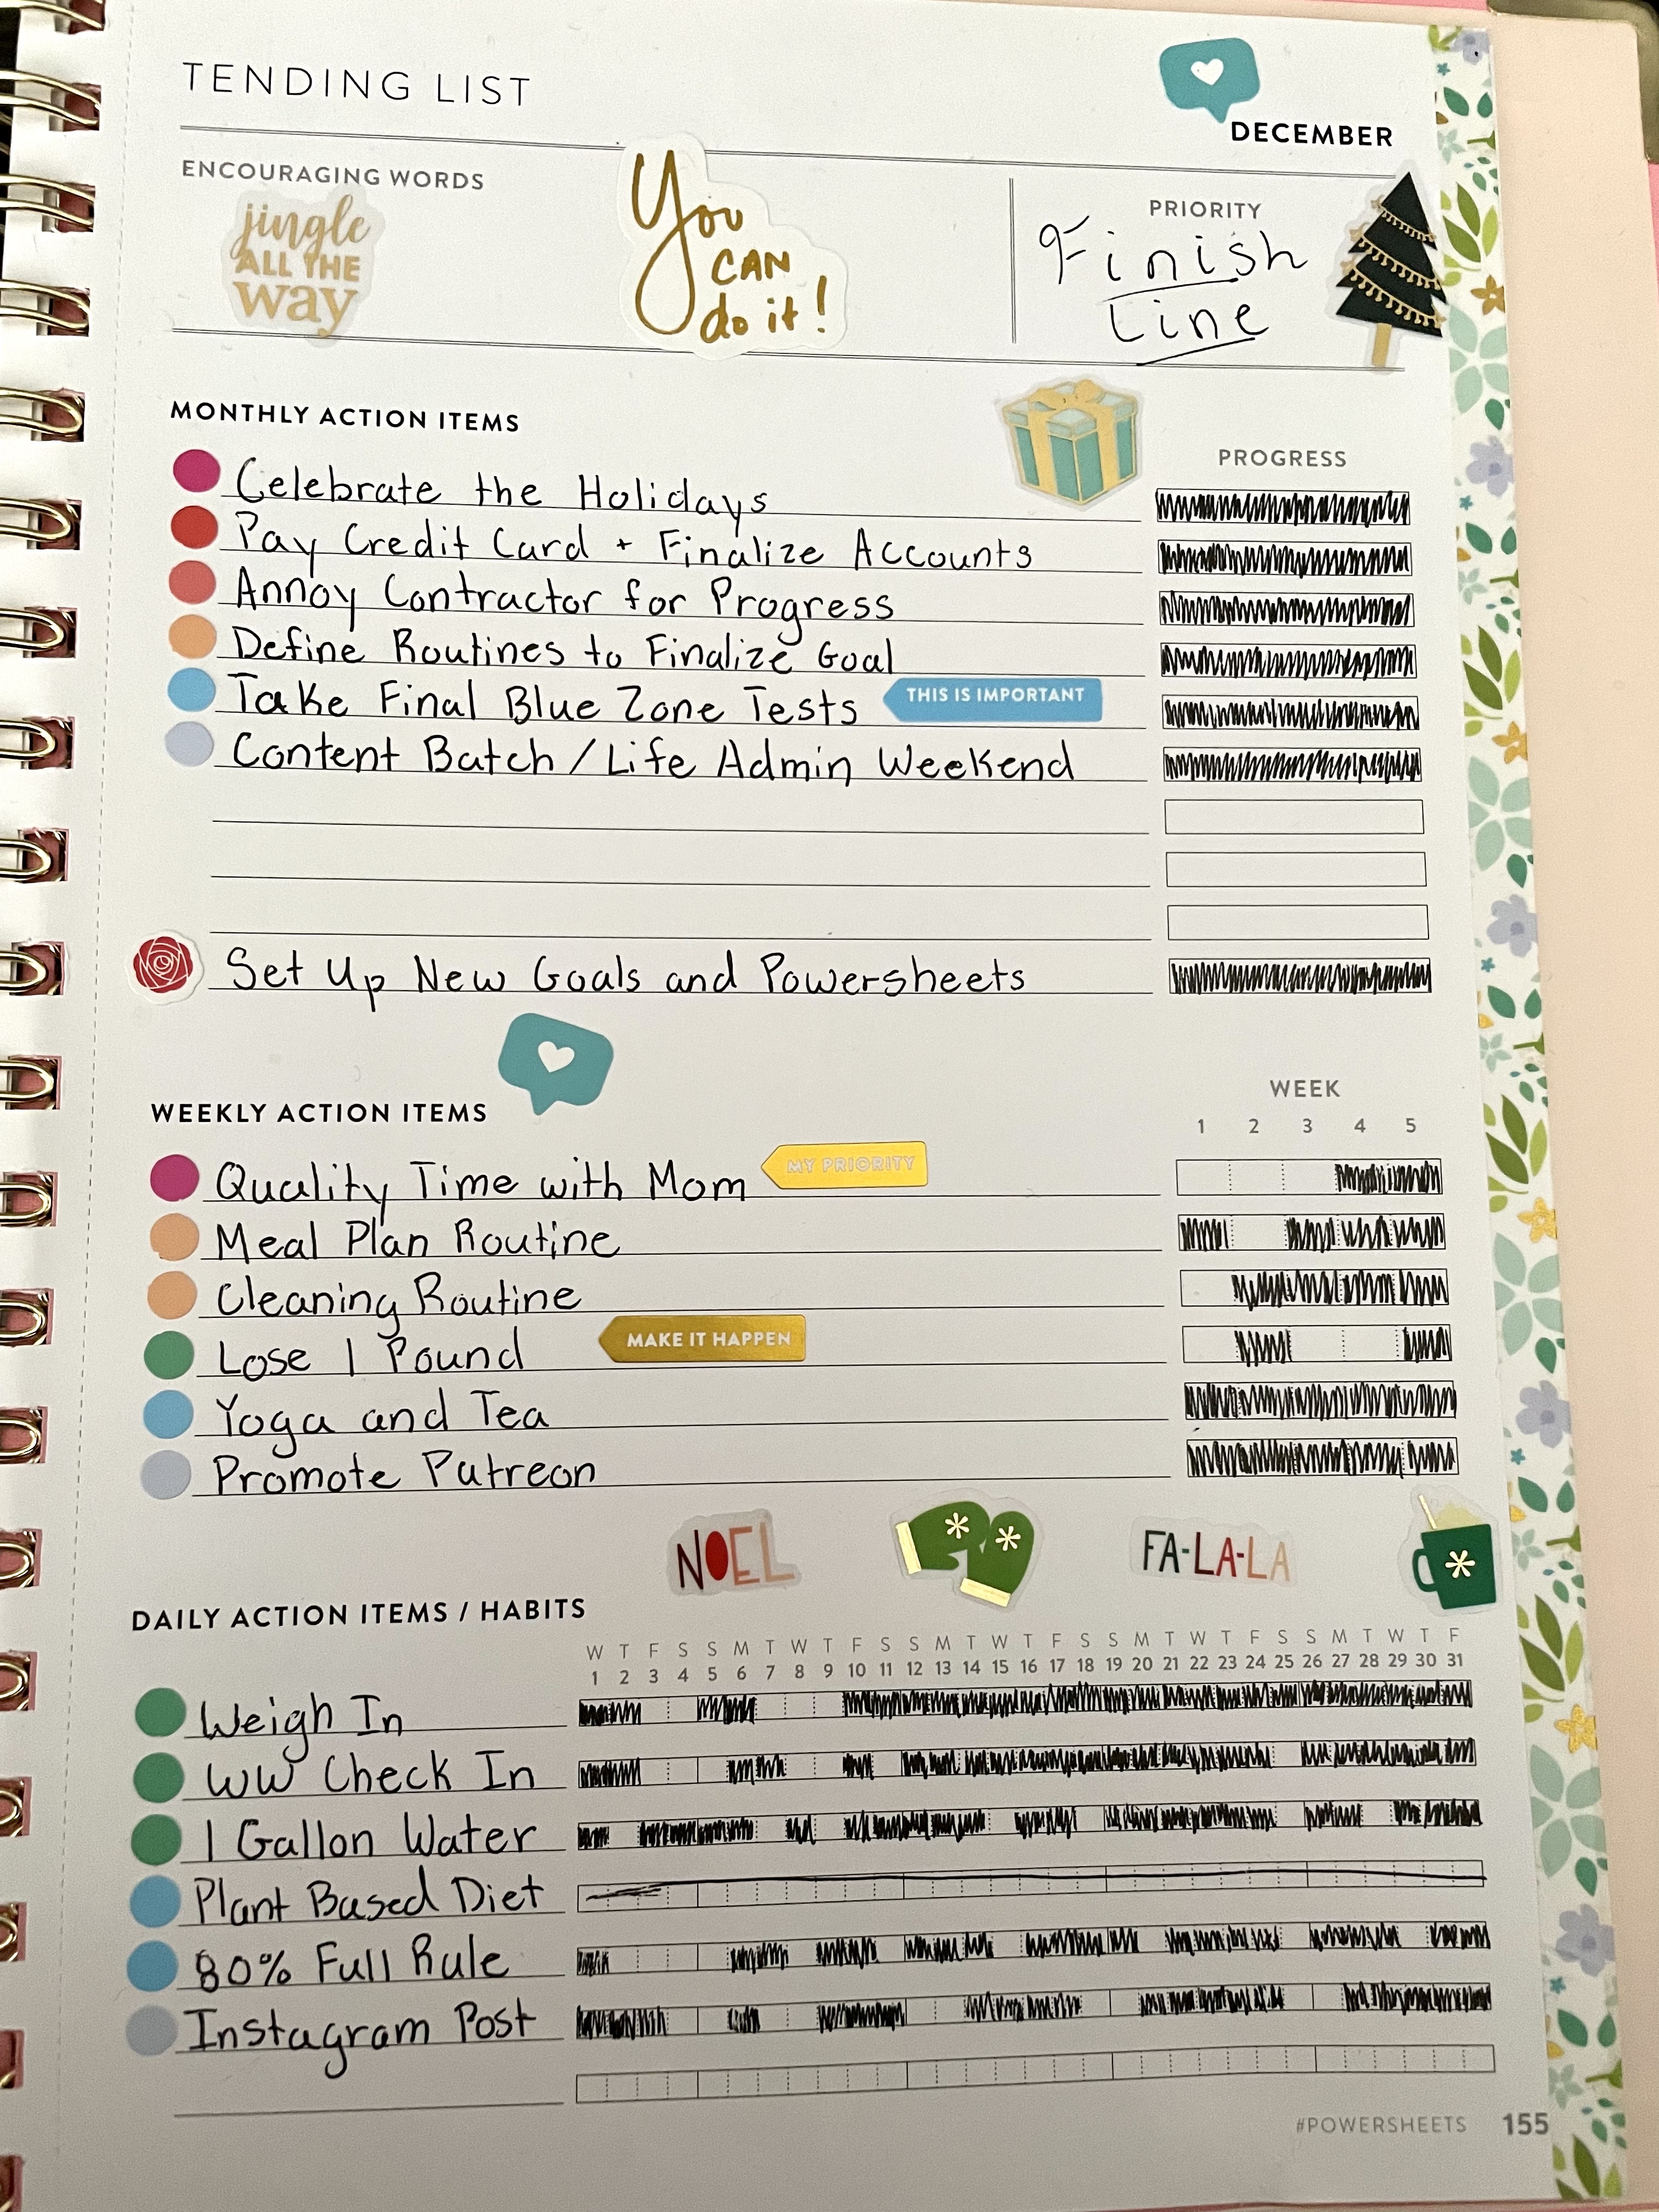 TENDING LIST
DECEMBER
ENCOURAGING WORDS
jingle
ALL THE
way
You
CAN
do it!
PRIORITY
Finish
Line
MONTHLY ACTION ITEMS
PROGRESS
Celebrate the Holidays
Pay Credit Card + Finalize Accounts
Annoy Contractor for Progress
Define Routines to Finalize Goal
Take Final Blue Zone Tests THIS IS IMPORTANT
Content Batch / Life Admin Weekend
Set Up New Goals and Powersheets
WEEKLY ACTION ITEMS
WEEK
1 2 3 4 5
Quality Time with Mom MY PRIORITY
Meal Plan Routine
Cleaning Routine
Lose 1 Pound MAKE IT HAPPEN
Yoga and Tea
Promote Patreon
NOEL FA-LA-LA
DAILY ACTION ITEMS / HABITS
W T F S S M T W T F S S M T W T F S S M T W T F S S M T W T F
1 2 3 4 5 6 7 8 9 10 11 12 13 14 15 16 17 18 19 20 21 22 23 24 25 26 27 28 29 30 31
Weigh In
WW Check In
1 Gallon Water
Plant Based Diet
80% Full Rule
Instagram Post
#POWERSHEETS 155